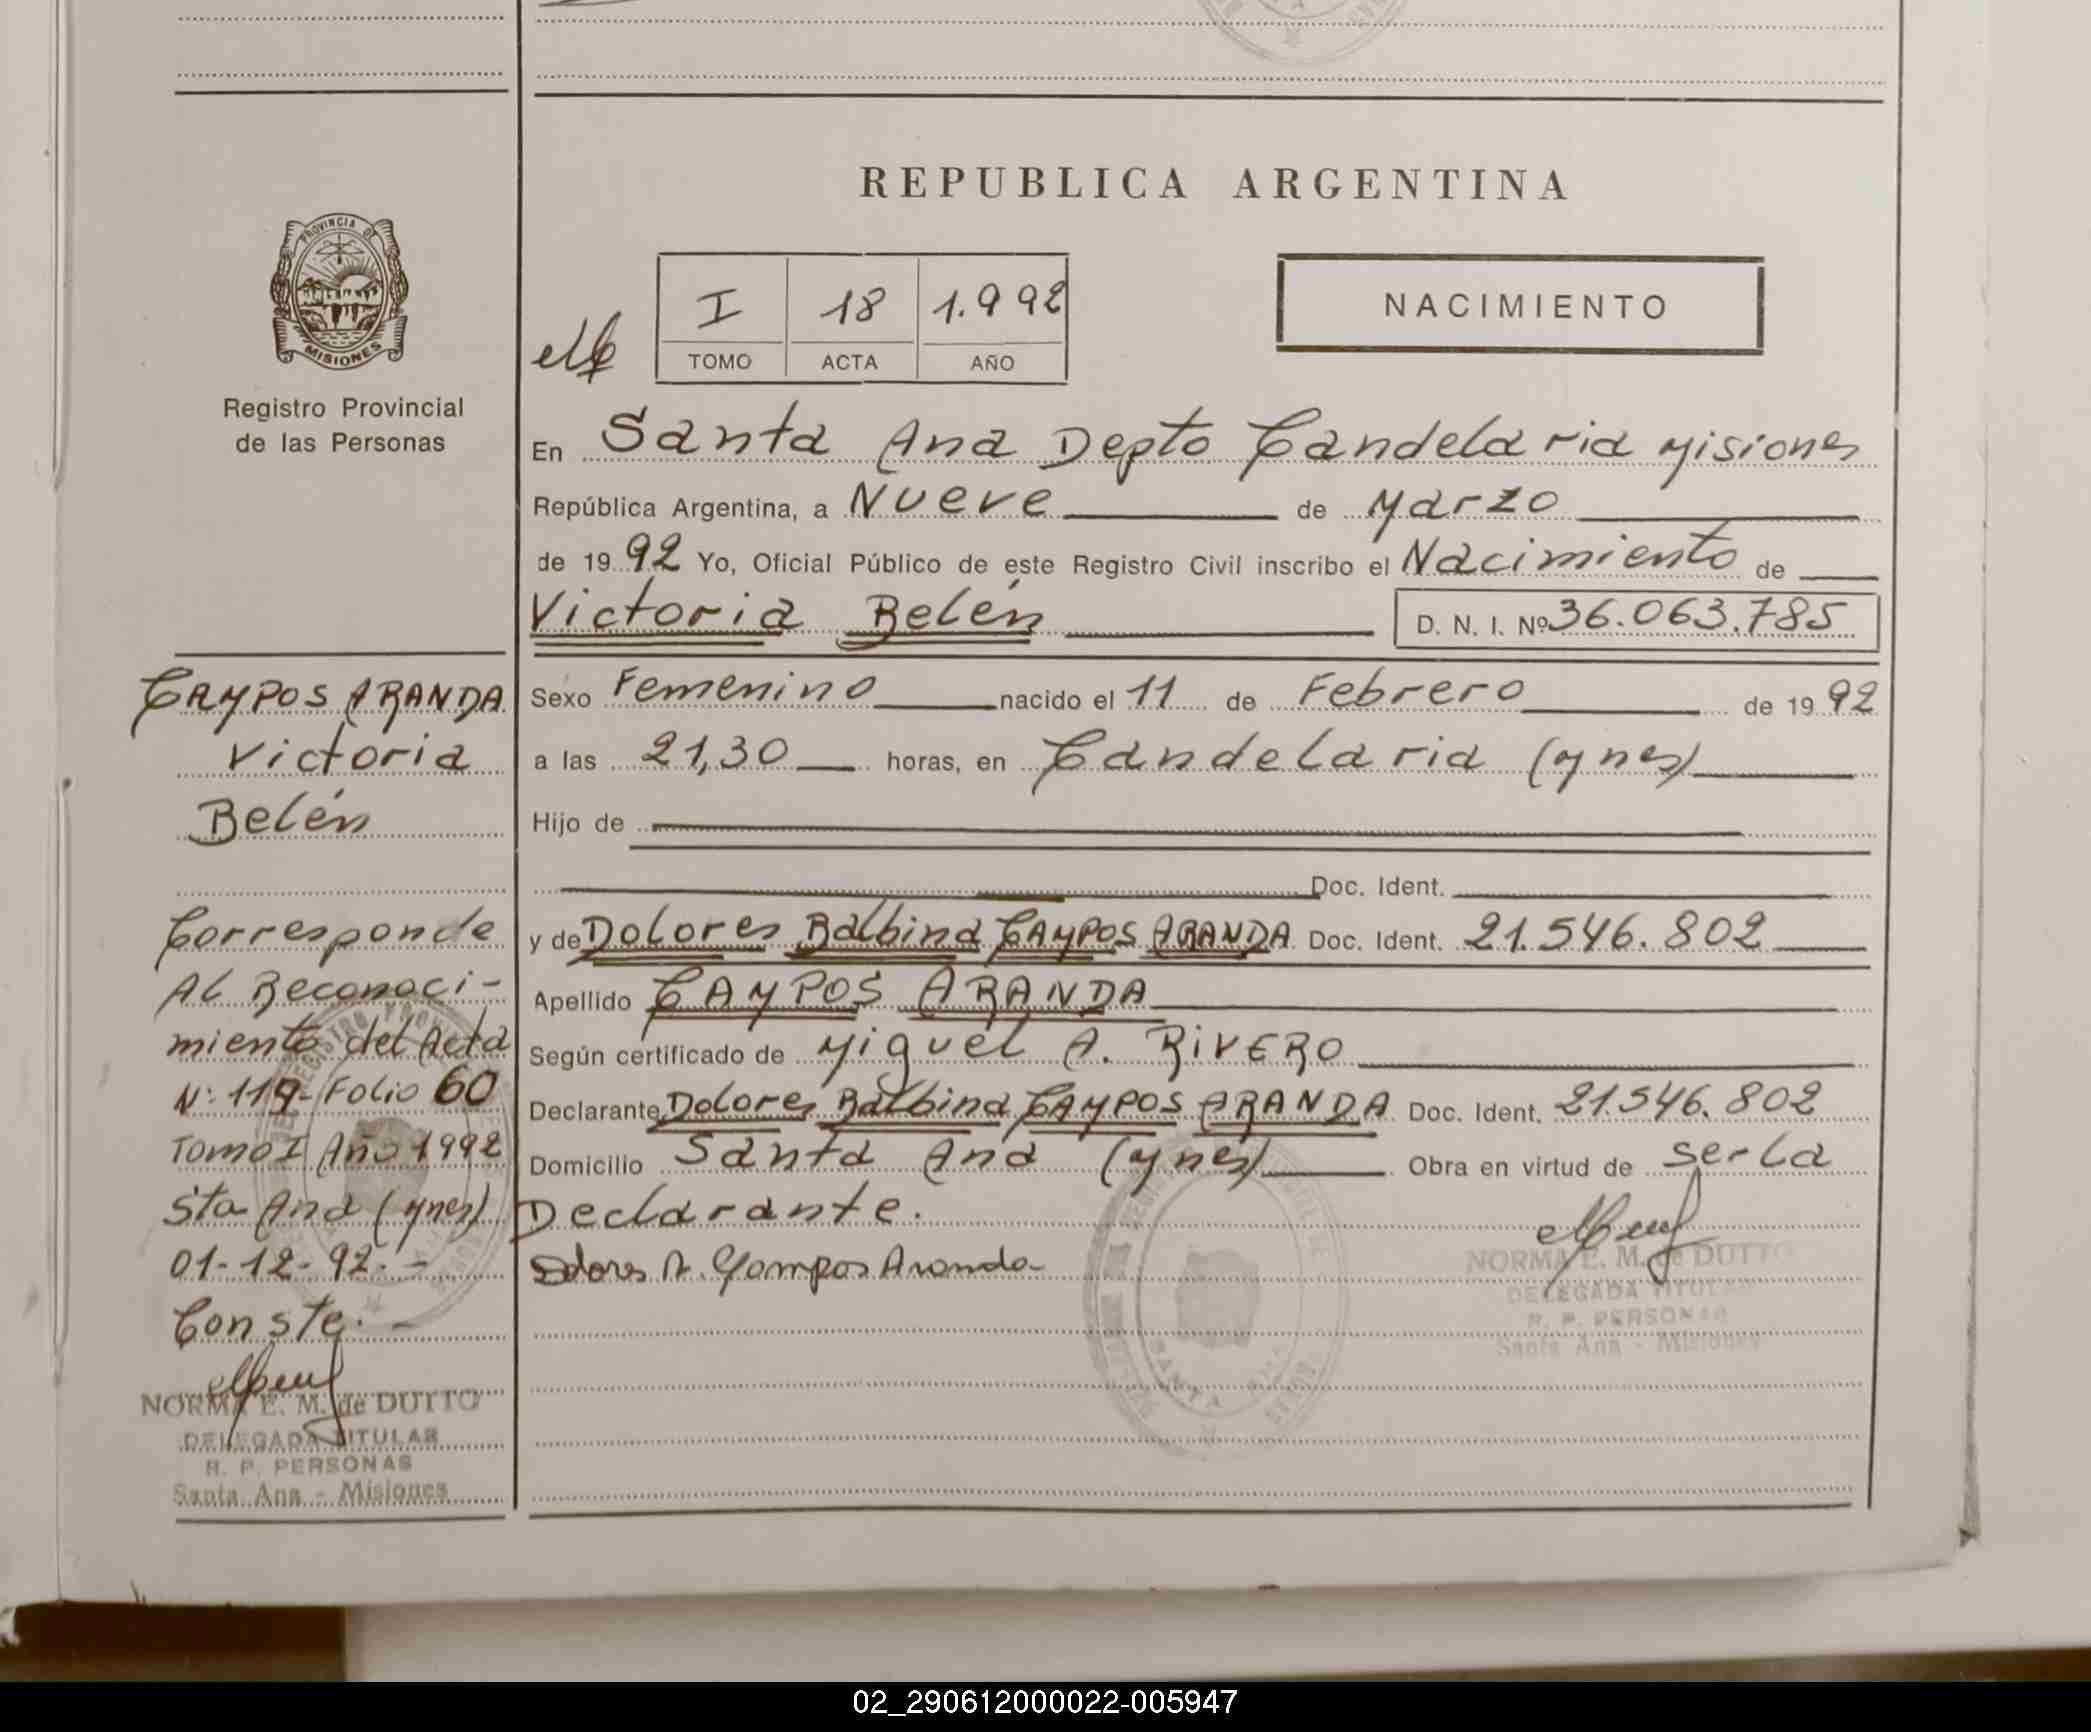 REPUBLICA ARGENTINA
PROVINCIA DE
MISIONES
Registro Provincial
de las Personas
I 18 1.992
TOMO ACTA AÑO
NACIMIENTO
En Santa Ana Depto Candelaria Misiones
República Argentina, a Nueve de Marzo
de 1992 Yo, Oficial Público de este Registro Civil inscribo el Nacimiento de
Victoria Belén D. N. I. Nº 36.063.785
Sexo Femenino nacido el 11 de Febrero de 1992
a las 21,30 horas, en Candelaria (Mnes)
Hijo de
Doc. Ident.
y de Dolores Balbina CAMPOS ARANDA Doc. Ident. 21.546.802
Apellido CAMPOS ARANDA
Según certificado de Miguel A. RIVERO
Declarante Dolores Balbina CAMPOS ARANDA Doc. Ident. 21.546.802
Domicilio Santa Ana (Mnes) Obra en virtud de ser la
Declarante.
Campos Aranda
NORMA E. M. de DUTTO
DELEGADA TITULAR
R. P. PERSONAS
Santa Ana - Misiones
CAMPOS ARANDA
Victoria
Belén
Corresponde
Al Reconoci-
miento del Acta
Nº 119 - Folio 60
Tomo I Año 1992
Sta Ana (Mnes)
01-12-92.-
Conste.-
NORMA E. M. de DUTTO
DELEGADA TITULAR
R. P. PERSONAS
Santa Ana - Misiones
SANTA ANA
02_290612000022-005947